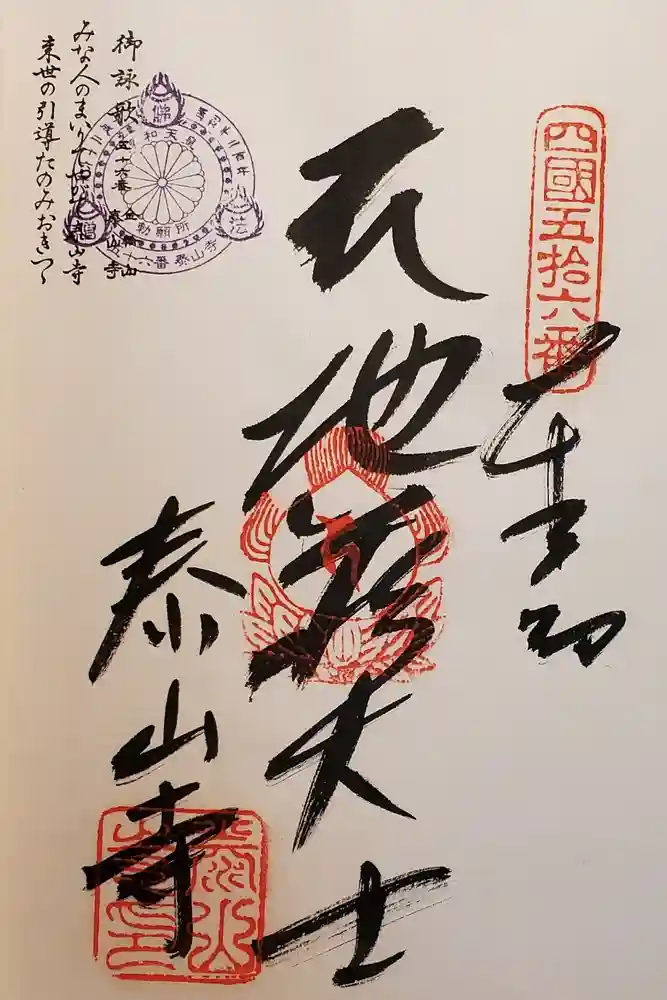 四國五拾六番
奉納
地蔵大士
泰山寺
御詠歌 五十六番 金輪山 泰山寺
みな人のまいりてやがて泰山寺
来世の引導たのみおきつゝ
勅願所
五十六番 泰山寺
佛
法
僧